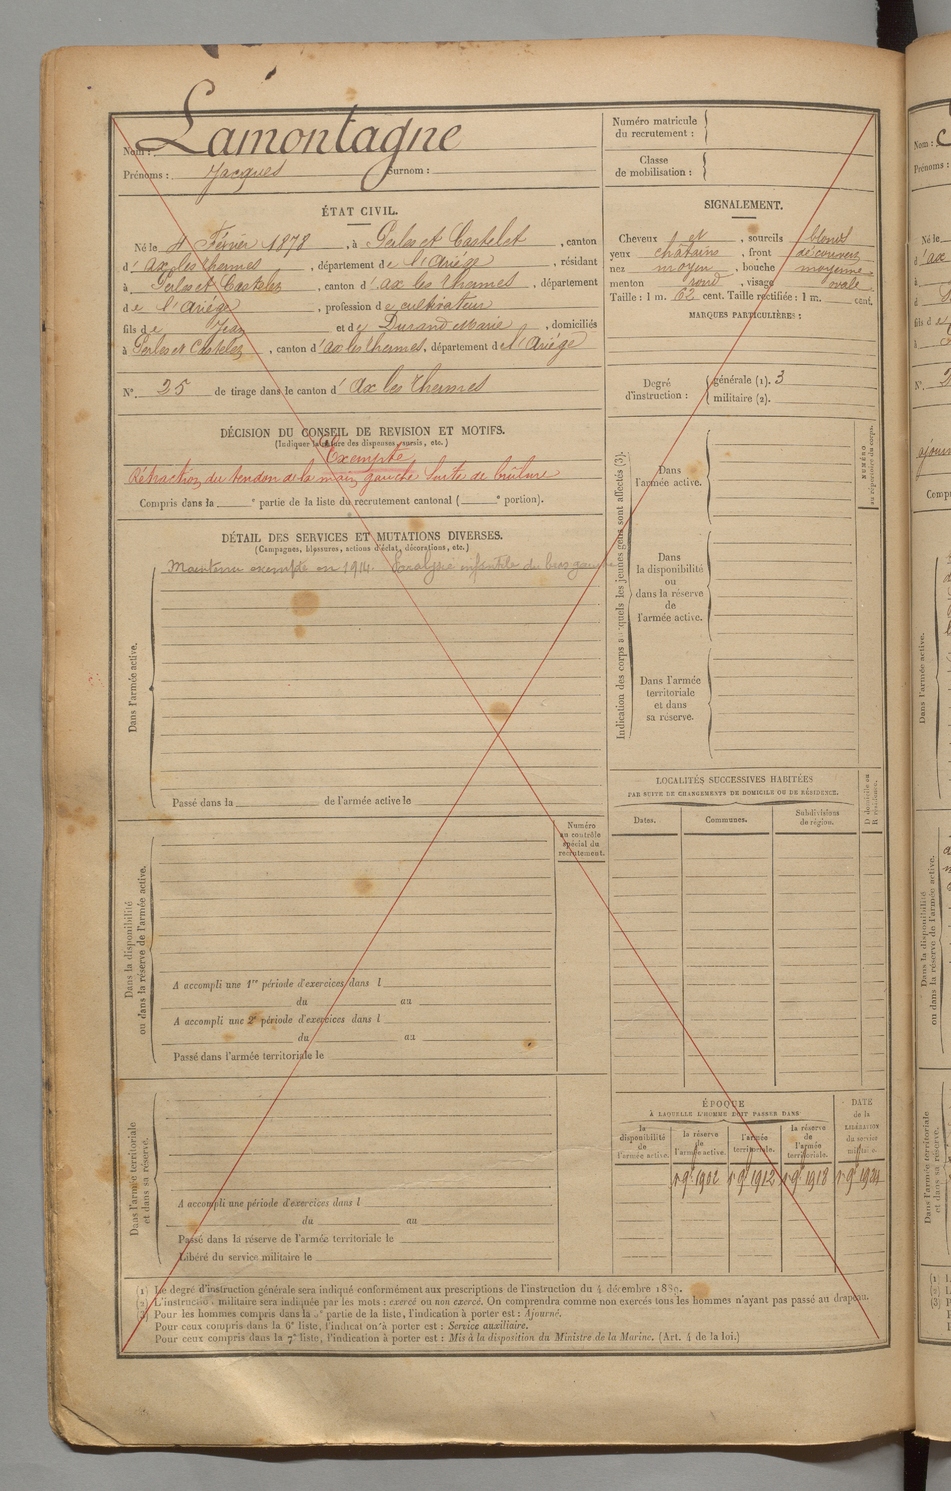 Nom : Lamontagne
Prénoms : Jacques Surnom :
ÉTAT CIVIL.
Né le 4 Février 1878, à Perles et Castelet, canton
d' ax les thermes, département de l'Ariége, résidant
à Perles et Castelet, canton d' ax les thermes, département
de l'Ariége, profession de cultivateur
fils de Jean et de Durand Marie, domiciliés
à Perles et Castelet, canton d' ax les thermes, département de l'Ariége
N° 25 de tirage dans le canton d' Ax les thermes
DÉCISION DU CONSEIL DE REVISION ET MOTIFS.
(Indiquer la nature des dispenses, sursis, etc.)
Exempté
Rétraction du tendon de la main gauche Suite de brûlure
Compris dans la e partie de la liste du recrutement cantonal ( e portion).
DÉTAIL DES SERVICES ET MUTATIONS DIVERSES.
(Campagnes, blessures, actions d'éclat, décorations, etc.)
Maintenu exempté en 1914. Paralysie infantile du bras gauche
Dans l'armée active.
Passé dans la de l'armée active le
Numéro
au contrôle
spécial du
recrutement.
Dans la disponibilité
ou dans la réserve de l'armée active.
A accompli une 1re période d'exercices dans l
du au
A accompli une 2e période d'exercices dans l
du au
Passé dans l'armée territoriale le
Dans l'armée territoriale
et dans sa réserve.
A accompli une période d'exercices dans l
du au
Passé dans la réserve de l'armée territoriale le
Libéré du service militaire le
Numéro matricule
du recrutement :
Classe
de mobilisation :
SIGNALEMENT.
Cheveux et, sourcils blonds
yeux châtains, front découvert
nez moyen, bouche moyenne
menton rond, visage ovale
Taille : 1 m. 62 cent. Taille rectifiée : 1 m. cent.
MARQUES PARTICULIÈRES :
Degré
d'instruction :
générale (1). 3
militaire (2).
Indication des corps auxquels les jeunes gens sont affectés (3).
Dans
l'armée active.
Dans
la disponibilité
ou
dans la réserve
de
l'armée active.
Dans l'armée
territoriale
et dans
sa réserve.
NUMÉRO
au répertoire du corps.
LOCALITÉS SUCCESSIVES HABITÉES
PAR SUITE DE CHANGEMENTS DE DOMICILE OU DE RÉSIDENCE.
D domicile ou
R résidence.
Dates. Communes. Subdivisions
de région.
ÉPOQUE
À LAQUELLE L'HOMME DOIT PASSER DANS
la
disponibilité
de
l'armée active.
la réserve
de
l'armée active.
l'armée
territoriale.
la réserve
de
l'armée
territoriale.
DATE
de la
LIBÉRATION
du service
militaire.
1 9e 1902 1 9e 1912 1 9e 1918 1 9e 1924
(1) Le degré d'instruction générale sera indiqué conformément aux prescriptions de l'instruction du 4 décembre 1889.
(2) L'instruction militaire sera indiquée par les mots : exercé ou non exercé. On comprendra comme non exercés tous les hommes n'ayant pas passé au drapeau.
(3) Pour les hommes compris dans la partie de la liste, l'indication à porter est : Ajourné.
Pour ceux compris dans la 6e liste, l'indication à porter est : Service auxiliaire.
Pour ceux compris dans la 7e liste, l'indication à porter est : Mis à la disposition du Ministre de la Marine. (Art. 4 de la loi.)